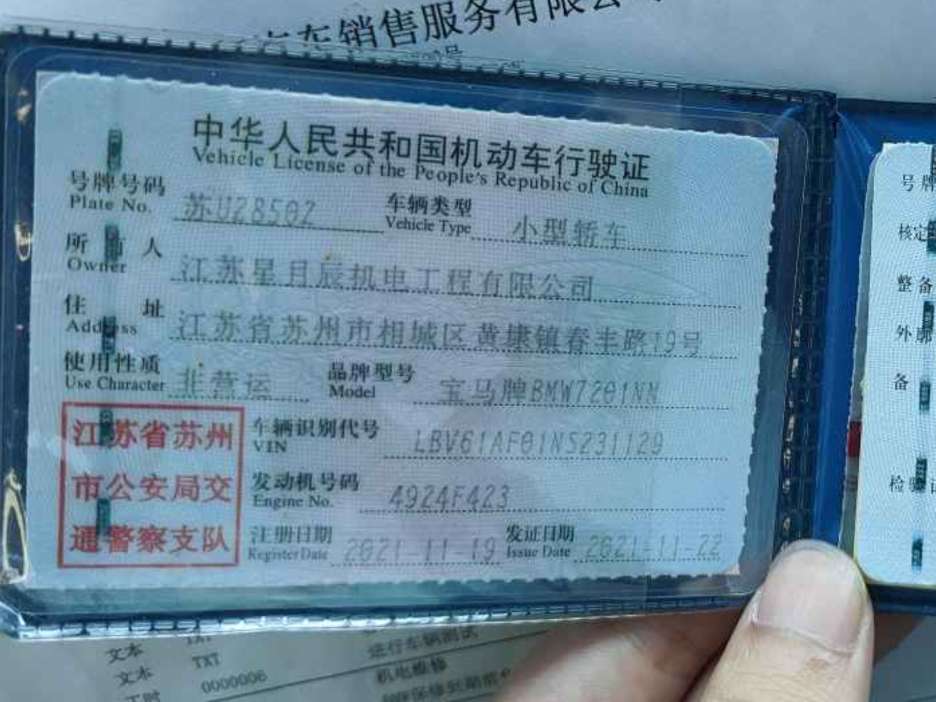 汽车销售服务有限公
中华人民共和国机动车行驶证
Vehicle License of the People's Republic of China
号牌号码 苏U2850Z 车辆类型 小型轿车
Plate No. Vehicle Type
所有人 江苏星月辰机电工程有限公司
Owner
住址 江苏省苏州市相城区黄埭镇春丰路19号
Address
使用性质 非营运 品牌型号 宝马牌BMW7201NN
Use Character Model
江苏省苏州
市公安局交
通警察支队
车辆识别代号 LBV61AF01NS231129
VIN
发动机号码 4924F423
Engine No.
注册日期 2021-11-19 发证日期 2021-11-22
Register Date Issue Date
号牌
核定
整备
外廓
备
检验
文本 TXT
进行车辆测试
文本 TXT
机电维修
工时 0000006